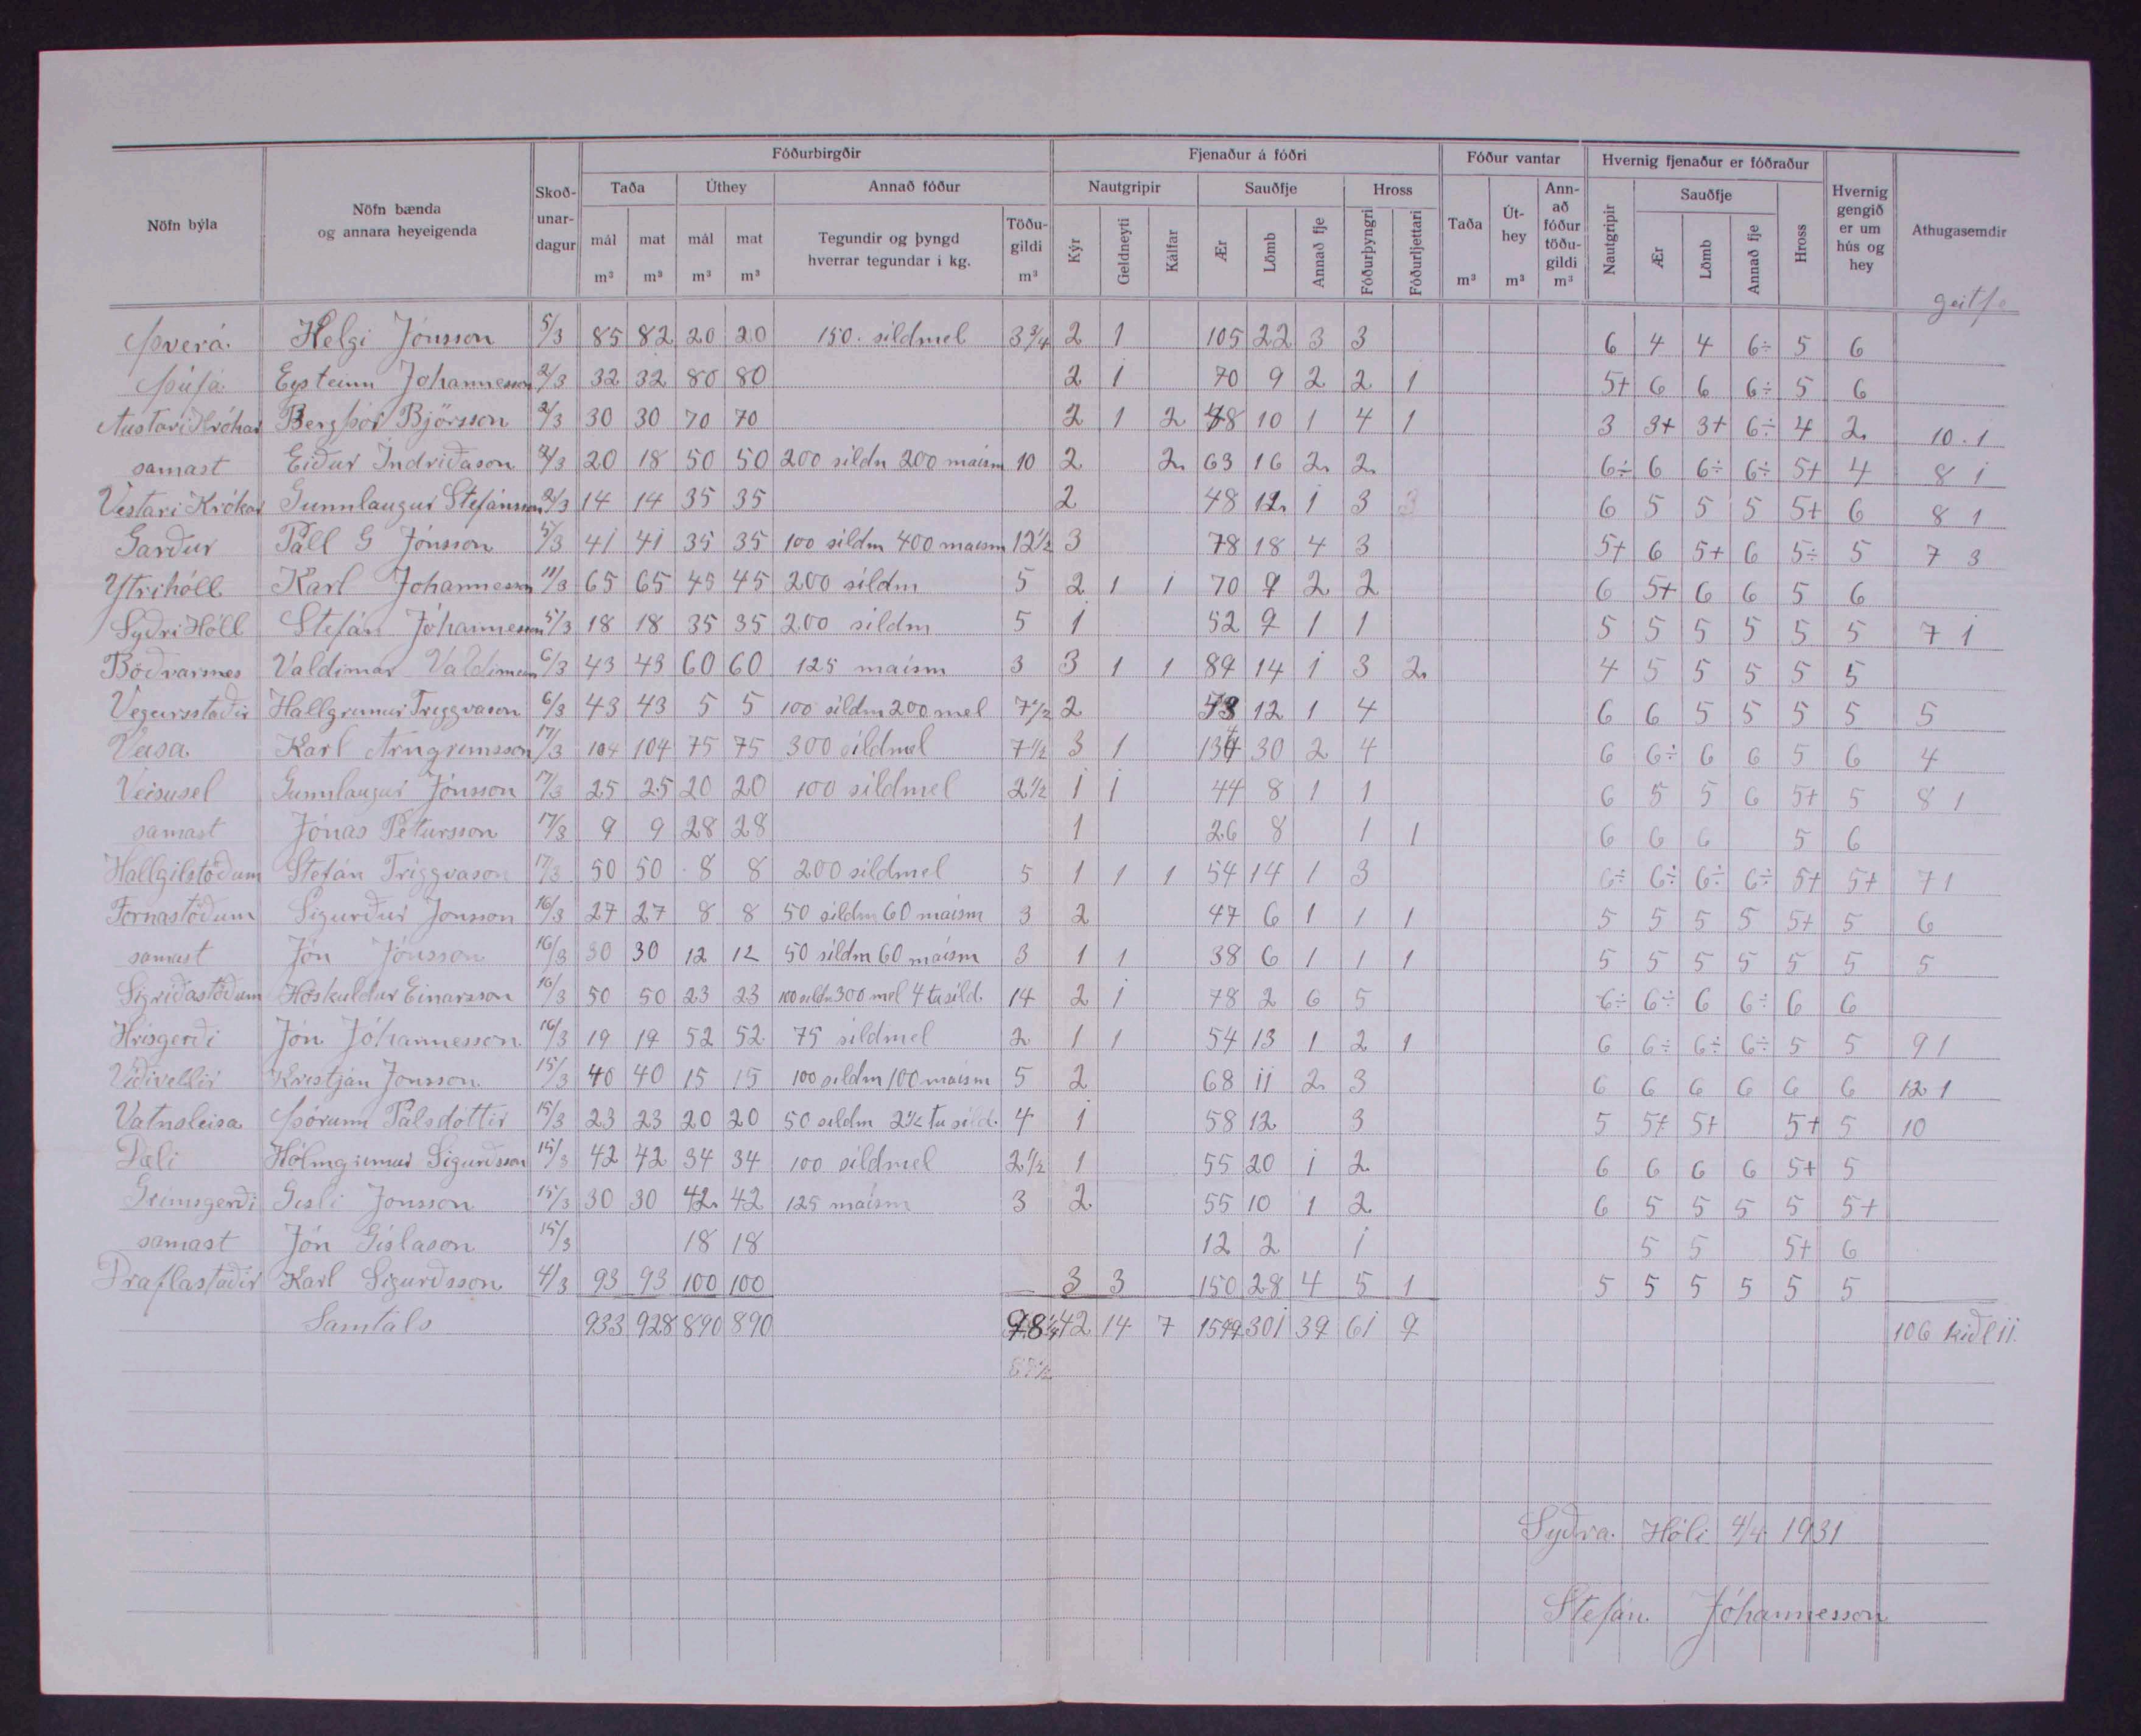 Fóðurbirgðir Fjenaður á fóðri Fóður vantar Hvernig fjenaður er fóðraður
Nöfn býla Nöfn bænda og annara heyeigenda Skoð-unar-dagur Taða Úthey Annað fóður Nautgripir Sauðfje Hross Taða m³ Út-hey m³ Ann-að fóður töðu-gildi m³ Nautgripir Sauðfje Hross Hvernig gengið er um hús og hey Athugasemdir
mál m³ mat m³ mál m³ mat m³ Tegundir og þyngd hverrar tegundar í kg. Töðu-gildi m³ Kýr Geldneyti Kálfar Ær Lömb Annað fje Fóðurþyngri Fóðurljettari Ær Lömb Annað fje
geitfe
Þverá Helgi Jónsson 5/3 85 82 20 20 150. síldmel 3¾ 2 1 105 22 3 3 6 4 4 6÷ 5 6
Þúfa Eysteinn Jóhannesson 2/3 32 32 80 80 2 1 70 9 2 2 1 5+ 6 6 6÷ 5 6
Austari Krókar Bergþór Björsson 2/3 30 30 70 70 2 1 2 48 10 1 4 1 3 3+ 3+ 6÷ 4 2 10.1
samast Eiður Indriðason 2/3 20 18 50 50 200 síldm 200 maísm 10 2 2 63 16 2 2 6÷ 6 6÷ 6÷ 5+ 4 8 1
Vestari Krókar Gunnlaugur Stefánsson 2/3 14 14 35 35 2 48 12 1 3 6 5 5 5 5+ 6 8 1
Garður Páll G Jónsson 5/3 41 41 35 35 100 síldm 400 maism 12½ 3 78 18 4 3 5+ 6 5+ 6 5÷ 5 7 3
Ytrihóll Karl Johannesson 11/3 65 65 45 45 200 síldm 5 2 1 1 70 9 2 2 6 5+ 6 6 5 6
Syðri Hóll Stefán Jóhannesson 5/3 18 18 35 35 200 sildm 5 1 52 9 1 1 5 5 5 5 5 5 7 1
Böðvarsnes Valdimar Valdimarsson 6/3 43 43 60 60 125 maísm 3 3 1 1 89 14 1 3 2 4 5 5 5 5 5
Vegeirsstaðir Hallgrimur Triggvason 6/3 43 43 5 5 100 síldm 200 mel 7½ 2 73 12 1 4 6 6 5 5 5 5 5
Veisa Karl Arngrimsson 17/3 104 104 75 75 300 síldmel 7½ 3 1 134 30 2 4 6 6÷ 6 6 5 6 4
Veisusel Gunnlaugur Jónsson 17/3 25 25 20 20 100 síldmel 2½ 1 1 44 8 1 1 6 5 5 6 5+ 5 8 1
samast Jónas Pétursson 17/3 9 9 28 28 1 26 8 1 1 6 6 6 5 6
Hallgilstöðum Stefán Triggvason 17/3 50 50 8 8 200 síldmel 5 1 1 1 54 14 1 3 6÷ 6÷ 6÷ 6÷ 5+ 5+ 7 1
Fornastöðum Sigurður Jonsson 16/3 27 27 8 8 50 síldm 60 maísm 3 2 47 6 1 1 1 5 5 5 5 5+ 5 6
samast Jón Jónsson 16/3 30 30 12 12 50 síldm 60 maísm 3 1 1 38 6 1 1 1 5 5 5 5 5 5 5
Sigríðastöðum Höskuldur Einarsson 16/3 50 50 23 23 100 síldm 300 mel 4 tu síld. 14 2 1 78 2 6 5 6÷ 6÷ 6 6÷ 6 6
Hrísgerði Jón Jóhannesson 16/3 19 19 52 52 75 síldmel 2 1 1 54 13 1 2 1 6 6÷ 6÷ 6÷ 5 5 9 1
Víðivellir Kristján Jonsson 15/3 40 40 15 15 100 síldm 100 maísm 5 2 68 11 2 3 6 6 6 6 6 6 12 1
Vatnsleisa Þórunn Pálsdóttir 15/3 23 23 20 20 50 síldm 2½ tu síld. 4 1 58 12 3 5 5+ 5+ 5+ 5 10
Dæli Hólmgrimur Sigurðsson 15/3 42 42 34 34 100 síldmel 2½ 1 55 20 1 2 6 6 6 6 5+ 5
Grímsgerði Gisli Jonsson 15/3 30 30 42 42 125 maísm 3 2 55 10 1 2 6 5 5 5 5 5+
samast Jón Gíslason 15/3 18 18 12 2 1 5 5 5+ 6
Draflastaðir Karl Sigurðsson 4/3 93 93 100 100 3 3 150 28 4 5 1 5 5 5 5 5 5
Samtals 933 928 890 890 98¼ 42 14 7 1599 301 39 61 9 106 kiðl 11.
Syðra. Hóli 4/4 1931
Stefán Jóhannesson